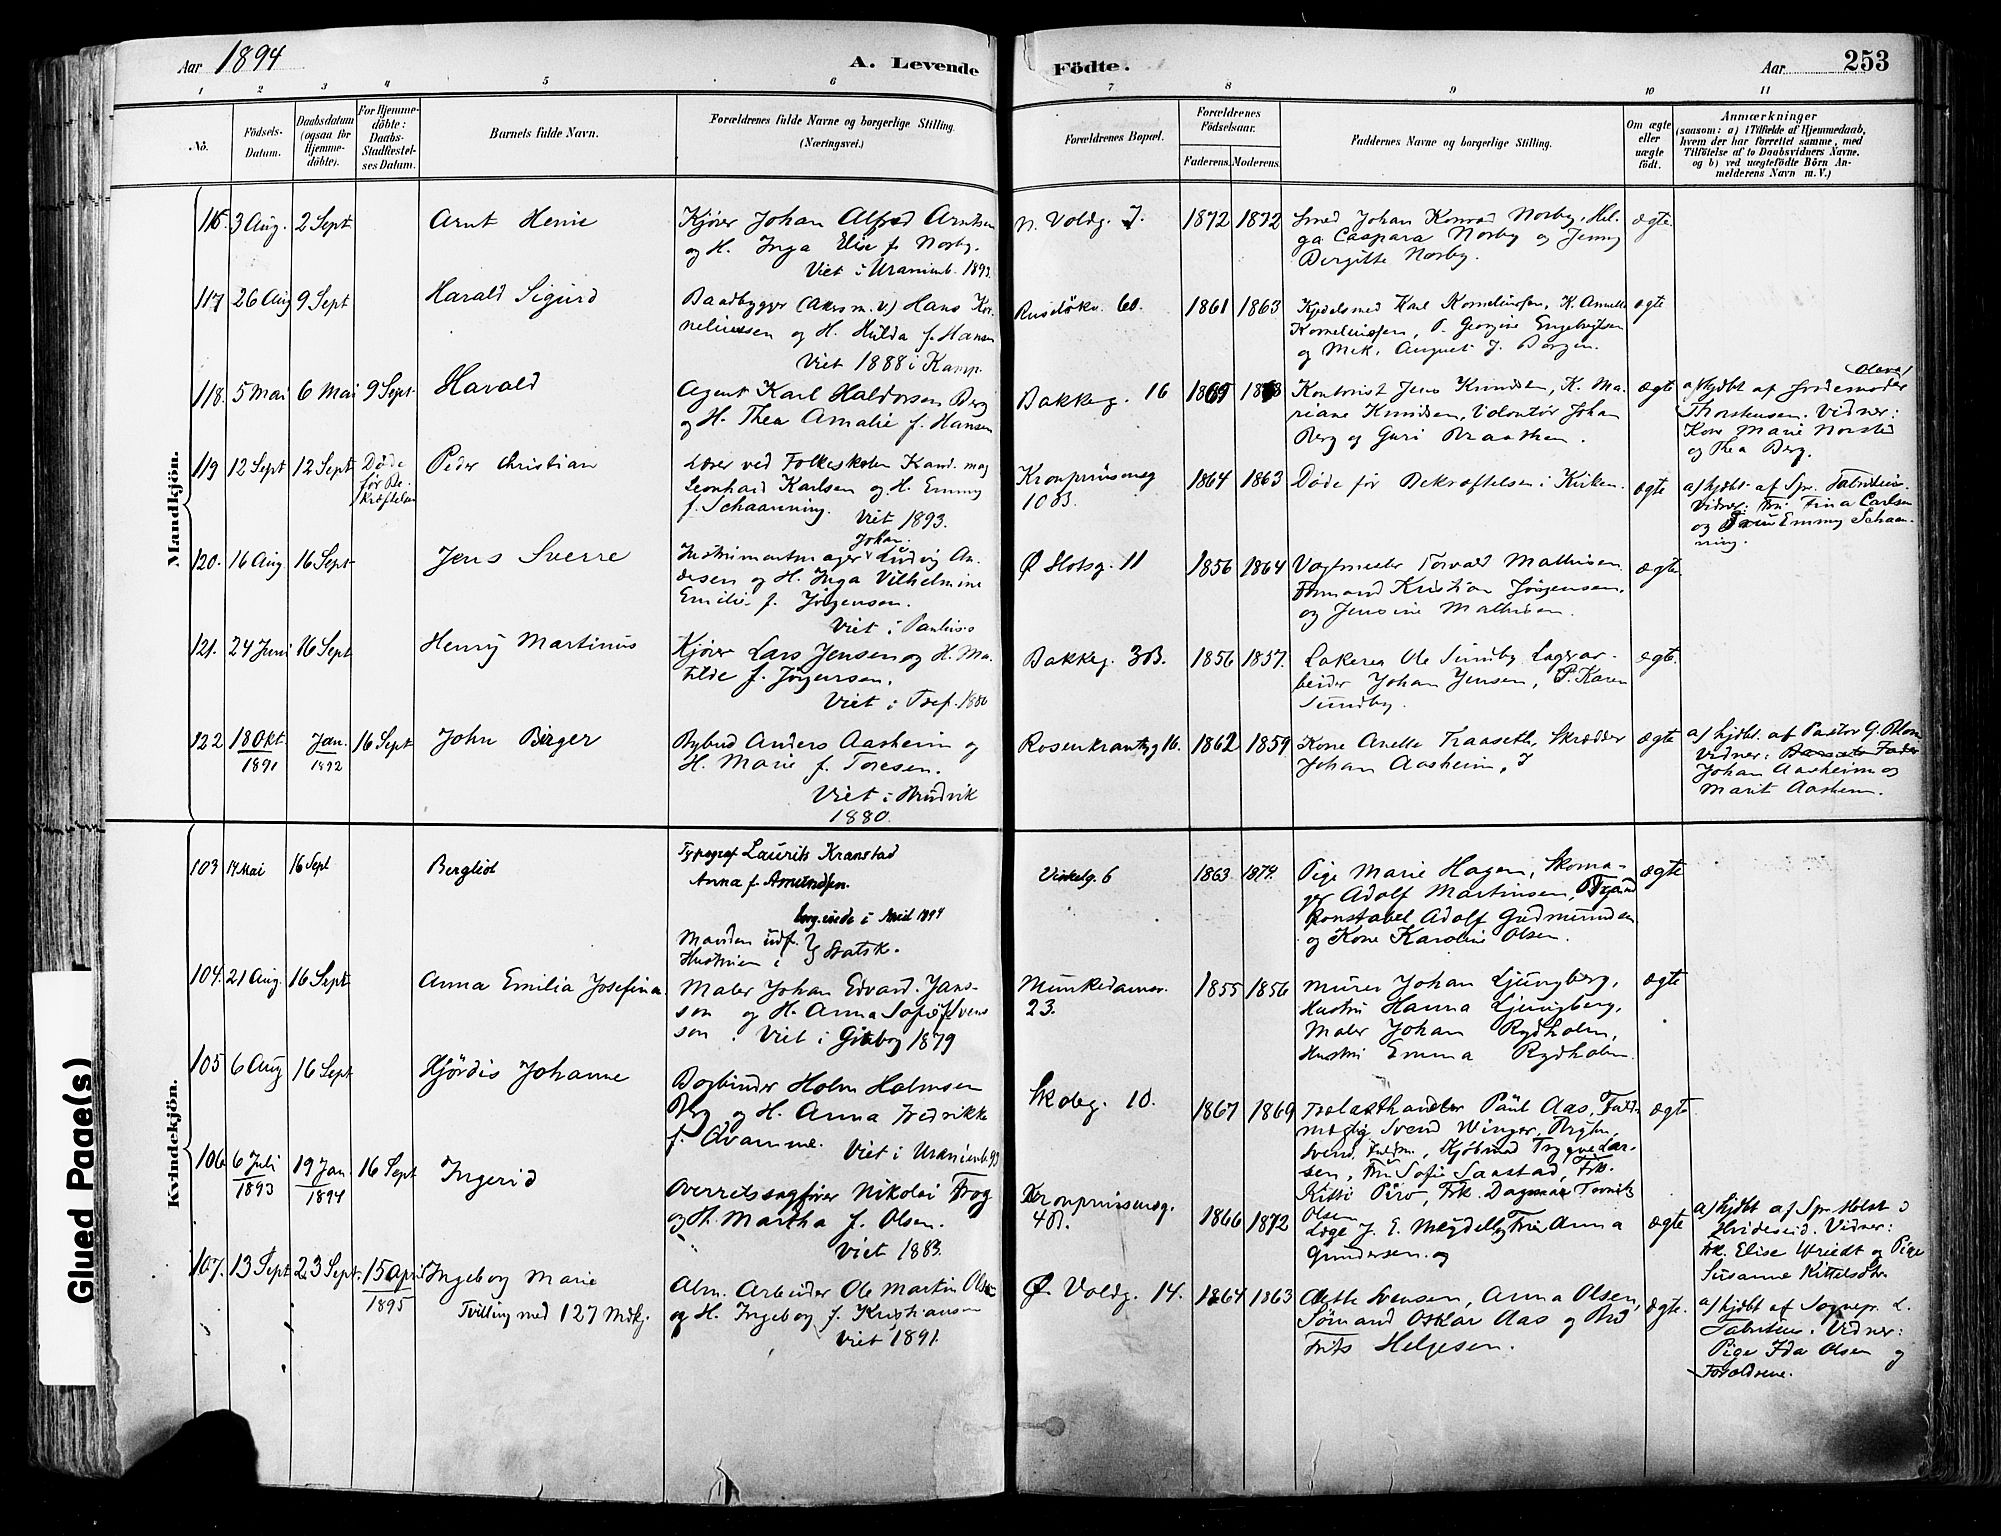 Aar 1894
A. Levende
Födte.
Aar
253
1 2 3 4 5 6 7 8 9 10 11
No.
Födsels-
Datum.
Daabsdatum
(ogsaa for
Hjemme-
döbte).
For Hjemme-
döbte:
Daabs-
Stadfæstel-
ses Datum.
Barnets fulde Navn.
Forældrenes fulde Navne og borgerlige Stilling.
(Næringsvei.)
Forældrenes Bopæl.
Forældrenes
Födselsaar.
Faderens. Moderens.
Faddernes Navne og borgerlige Stilling.
Om ægte
eller
uægte
født.
Anmærkninger
(saasom: a) i Tilfælde af Hjemmedaab,
hvem der har forrettet samme, med
Tilföielse af to Daabsvidners Navne.
og b) ved uægtefödte Börn An-
melderens Navn m. V.)
Mandkjön.
116 3 Aug. 2 Sept Arnt Henie
Kjører Johan Alfred Arntsen
og H. Inga Elise f. Norby.
Viet i Uranienb. 1893.
N. Voldg. 7. 1872 1872
Smed Johan Konrad Norby, Hel-
ga Caspara Norby og Jenny
Birgitte Norby.
ægte.
117 26 Aug 9 Sept Harald Sigurd
Baadbygger (Akers m. V.) Hans Kor-
neliussen og H. Hulda f. Hansen
Viet 1888 i Kamp.
Rusdökv. 60. 1861 1863
Kjedelsmed Karl Korneliussen, K. Annette
Korneliussen, P. Georgine Engebrigtsen
og Mek. August J. Borgen.
ægte
118. 5 Mai 6 Mai 9 Sept. Harald
Agent Karl Haldorsen Berg
og H. Thea Amalie f. Hansen
Bakkeg. 16
Kontorist Jens Knudsen, K. Ma-
riane Knudsen, Volontør Johan
Berg og Guri Braathen.
ægte
a/ hjdbt af Jordemoder Olava
Thorstensen. Vidner:
Kone Marie Norsted
og Thea Berg.
119 12 Sept 12 Sept Døde
før Be-
kræftelsen
Peder Christian
Lærer ved Folkeskolen Kand. mag
Leonhard Karlsen og H. Emmy
f. Schaanning. Viet 1893.
Kronprinsensg
10 B. 1864 1863
Døde før Bekræftelsen i Kirken.
ægte
a/ hjdbt. af Spr. Fabritius.
Vidner: Fru Tina Carlsen
og Emmy Schaan-
ning.
120. 16 Aug 16 Sept. Jens Sverre
Instrumentmager Johan Ludvig An-
dersen og H. Inga Vilhelmine
Emilie f. Jørgensen.
Viet i Paulus
Ø Slotsg. 11 1856 1864
Vagtmester Torvald Mathisen
Formand Kristian Jørgensen,
og Jensine Mathisen.
ægte.
121. 24 Juni 16 Sept Henry Martinus
Kjører Lars Jensen og H. Ma-
tilde f. Jörgensen.
Viet i Tref. 1880
Bakkeg. 3B. 1856 1857.
Lakerer Ole Sundby Lagerar-
beider Johan Jensen, P. Karen
Sundby.
ægte.
122 18 Okt.
1891
Jan.
1892
16 Sept John Birger
Bybud Anders Aasheim og
H. Marie f. Toresen.
Viet i Bruvik
1880.
Rosenkrantzg 16. 1862 1859
Kone Anette Traaseth, Skrædder
Johan Aasheim, J
ægte
a/ hjdbt. af Pastor G. Blom
Vidner:
Johan Aasheim og
Marit Aasheim.
Kvindekjön.
103 14 Mai 16 Sept Bergliot
Typograf Laurits Kranstad
Anna f. Amundsen.
borg. viede i April 1894
Manden udf.
Hustruen i } Statsk.
Vinkelg. 6 1863. 1874.
Pige Marie Hagen, Skoma-
ger Adolf Martinsen, Brand
konstabel Adolf Gudmundsen
og Kone Karoline Olsen.
ægte
104. 21 Aug. 16 Sept. Anna Emilia Josefina.
Maler Johan Edvard Jans-
son og H. Anna Sofie f. Svens
son. Viet i Gøtebog 1879
Munkedamsv.
23. 1855 1856
Murer Johan Ljungberg,
Hustru Hanna Ljungberg,
Maler Johan Rydholm,
Hustru Emma Rydholm.
ægte
105 6 Aug 16 Sept. Hjördis Johanne
Bogbinder Holm Holmsen
Berg og H. Anna Fredrikke
f. Qvamme. Viet i Uranienb. 93
Skoleg. 10. 1867 1869
Trælasthandler Paul Aas, Fuld-
mægtig Svend Winger,
Kjøbmd Trygve Lar-
sen, Fru Sofie Saastad, Frk.
Kitti Piro, Frk. Dagmar
Olsen
ægte
106 6 Juli
1893
19 Jan
1894
16 Sept Ingerid
Overretssagfører Nikolai Frog
og H. Martha f. Olsen.
Viet 1883.
Kronprinsensg.
4 B. 1866 1872
Læge J. E. Mejdell, Fru Anna
Gundersen og
ægte
a/ hjdbt af Spr. Holst i
Hvideseid. Vidner:
Frk. Elise Wriedt og Pige
Susanne Kittelsdtr.
107. 13 Sept 23 Sept. 15 April
1895
Ingeborg Marie
Tvilling med 127 Mdkj.
Alm. Arbeider Ole Martin Olsen
og H. Ingeborg f. Kristiansen
Viet 1891.
Ø. Voldg. 14. 1864 1863
Agthe Svensen, Anna Olsen,
Sømand Oskar Aas og Bud
Frits Helgesen.
ægte.
a/ hjdbt af Sognepr. L.
Fabritius. Vidner:
Pige Ida Olsen og
Forældrene.
Glued Page(s)